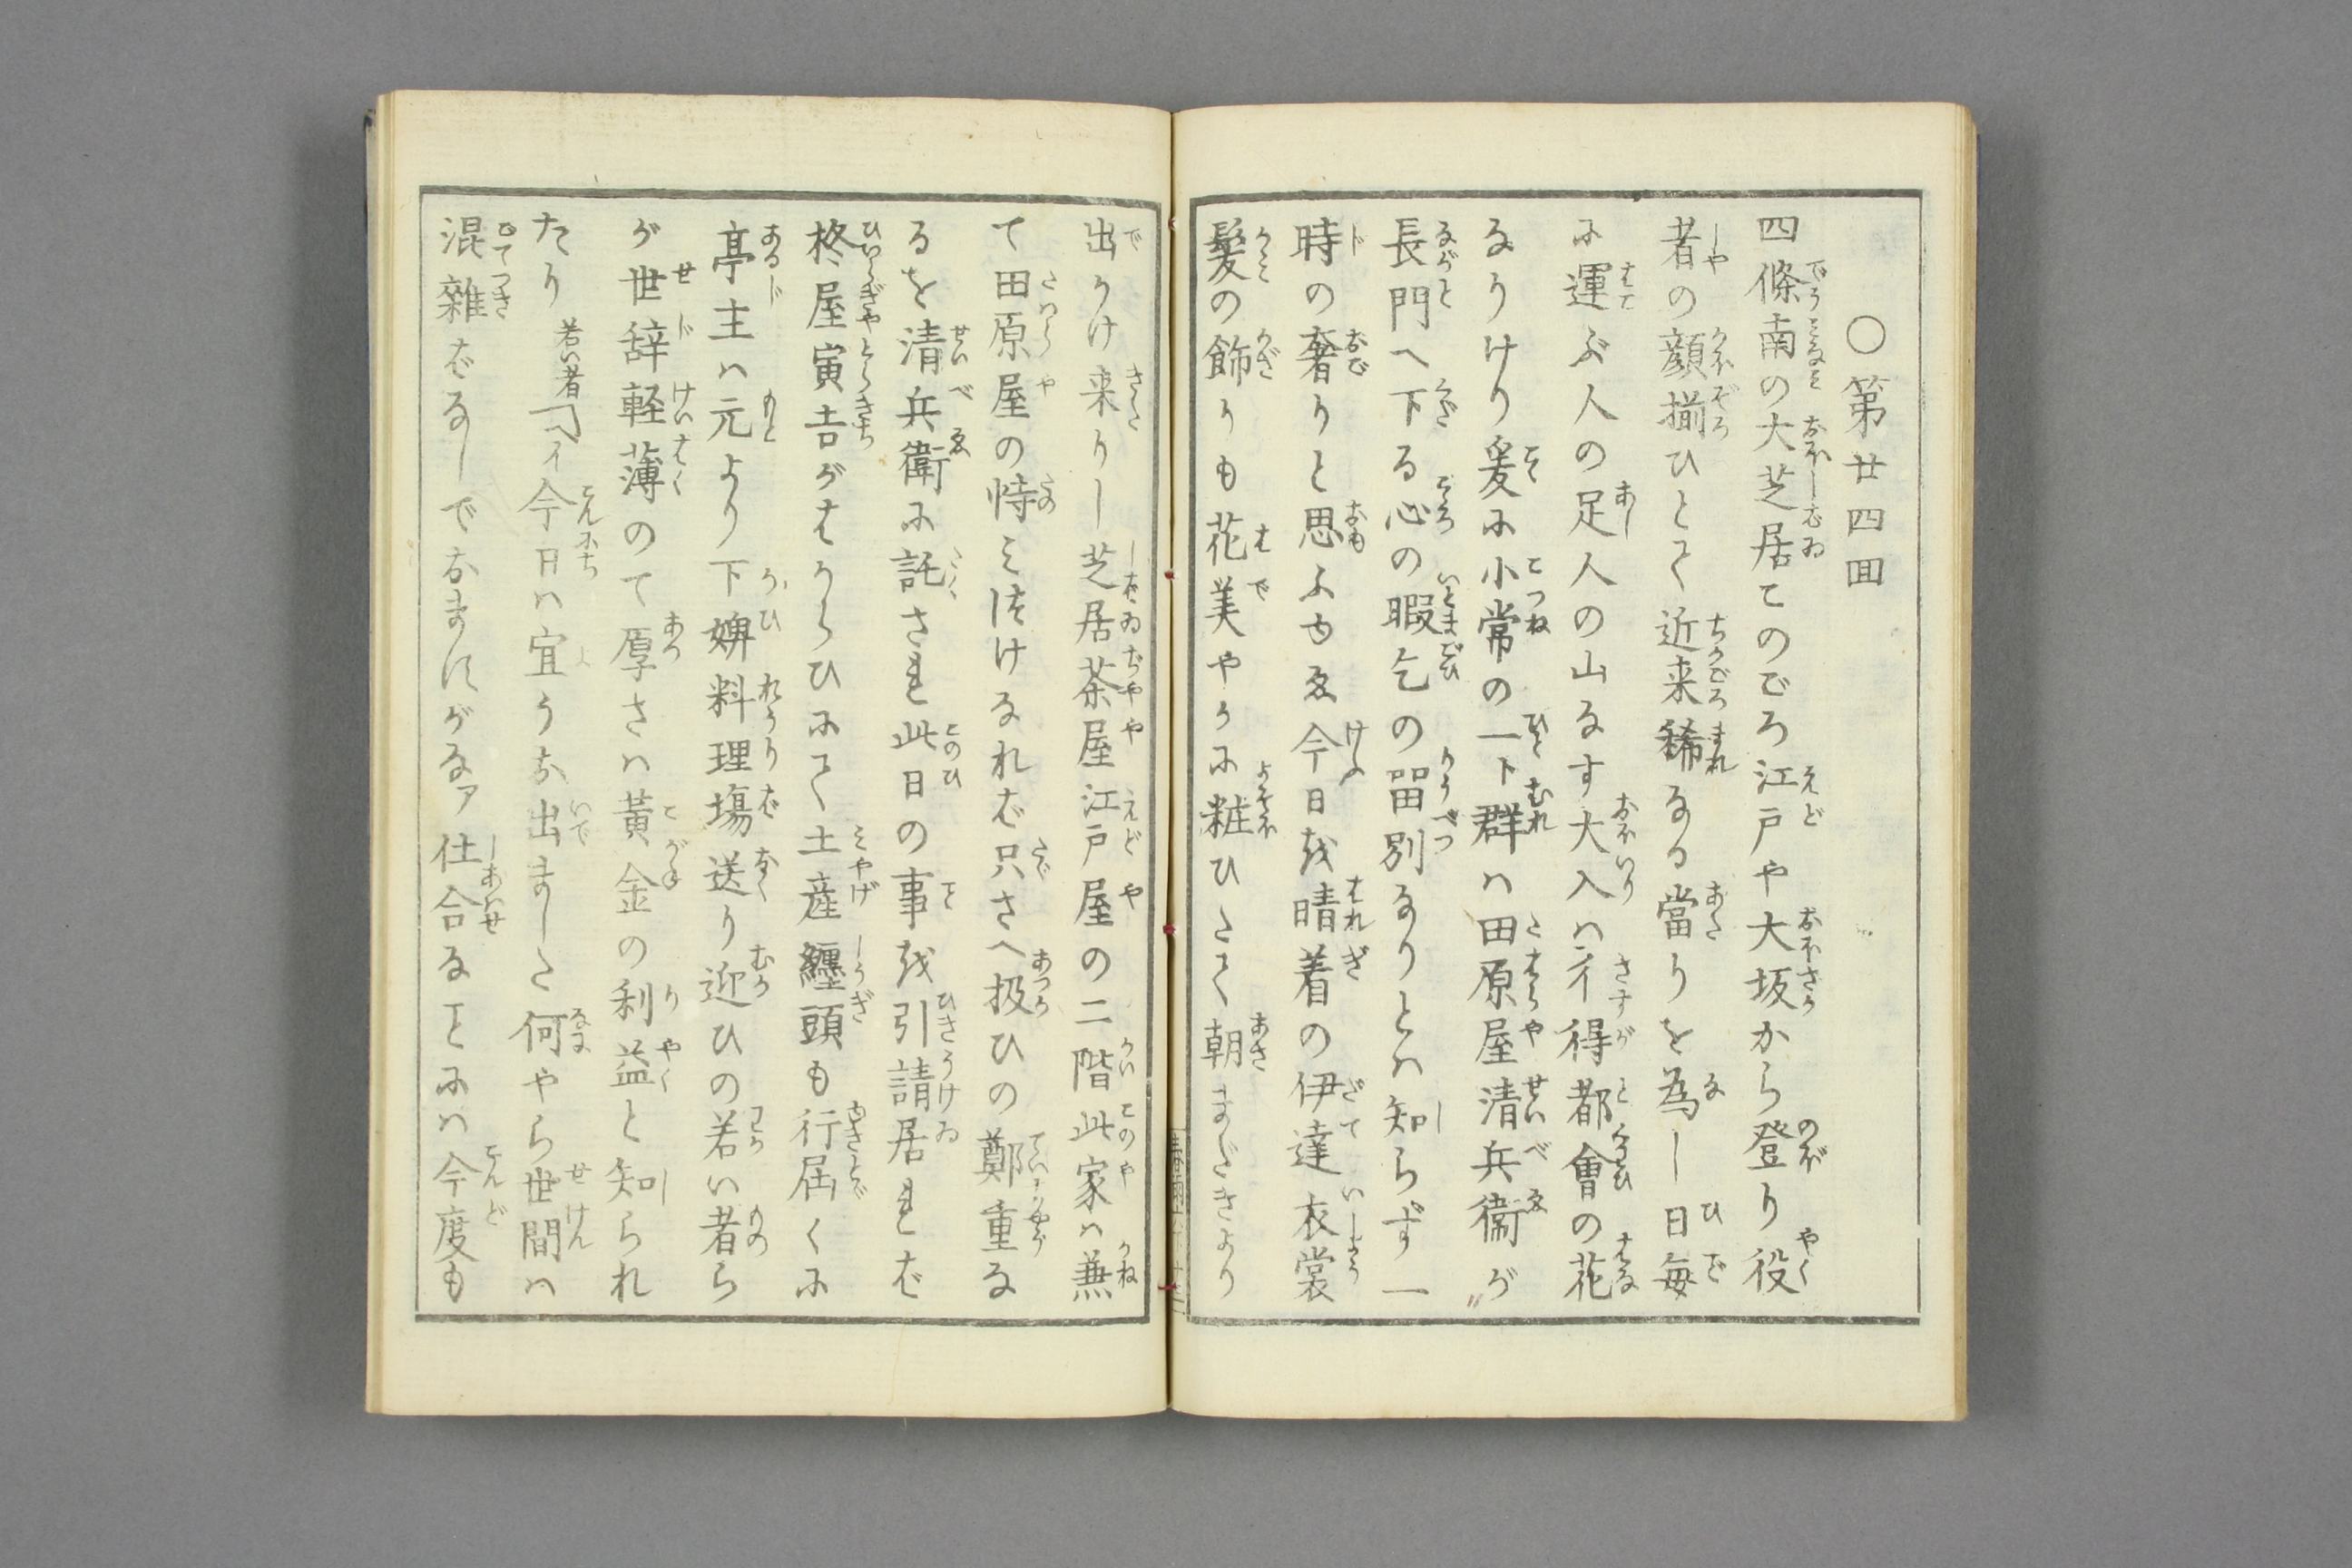 ○第廿四回
四條南の大芝居このごろ江戸や大坂から登り役
者の顔揃ひとて近来稀なる當りを為し日毎
に運ぶ人の足人の山なす大入は流石得都會の花
なりけり爰に小常の一ト群は田原屋清兵衛が
長門へ下る心の暇乞の留別なりとは知らず一
時の奢りと思ふゆゑ今日を晴着の伊達衣裳
髪の飾りも花美やかに粧ひたて朝まだきより
出かけ来りし芝居茶屋江戸屋の二階此家は兼
て田原屋の恃みつけなれば只さへ扱ひの鄭重な
るを清兵衛に託され此日の事を引請居れば
柊屋寅吉がはからひにて土産纏頭も行届くに
亭主は元より下婢料理場送り迎ひの若い者ら
が世辞軽薄のて厚さは黄金の利益と知られ
たり 若い者「ヘイ今日は宜うお出ました何やら世間は
混雑ばなしでおますがなア仕合なことには今度も